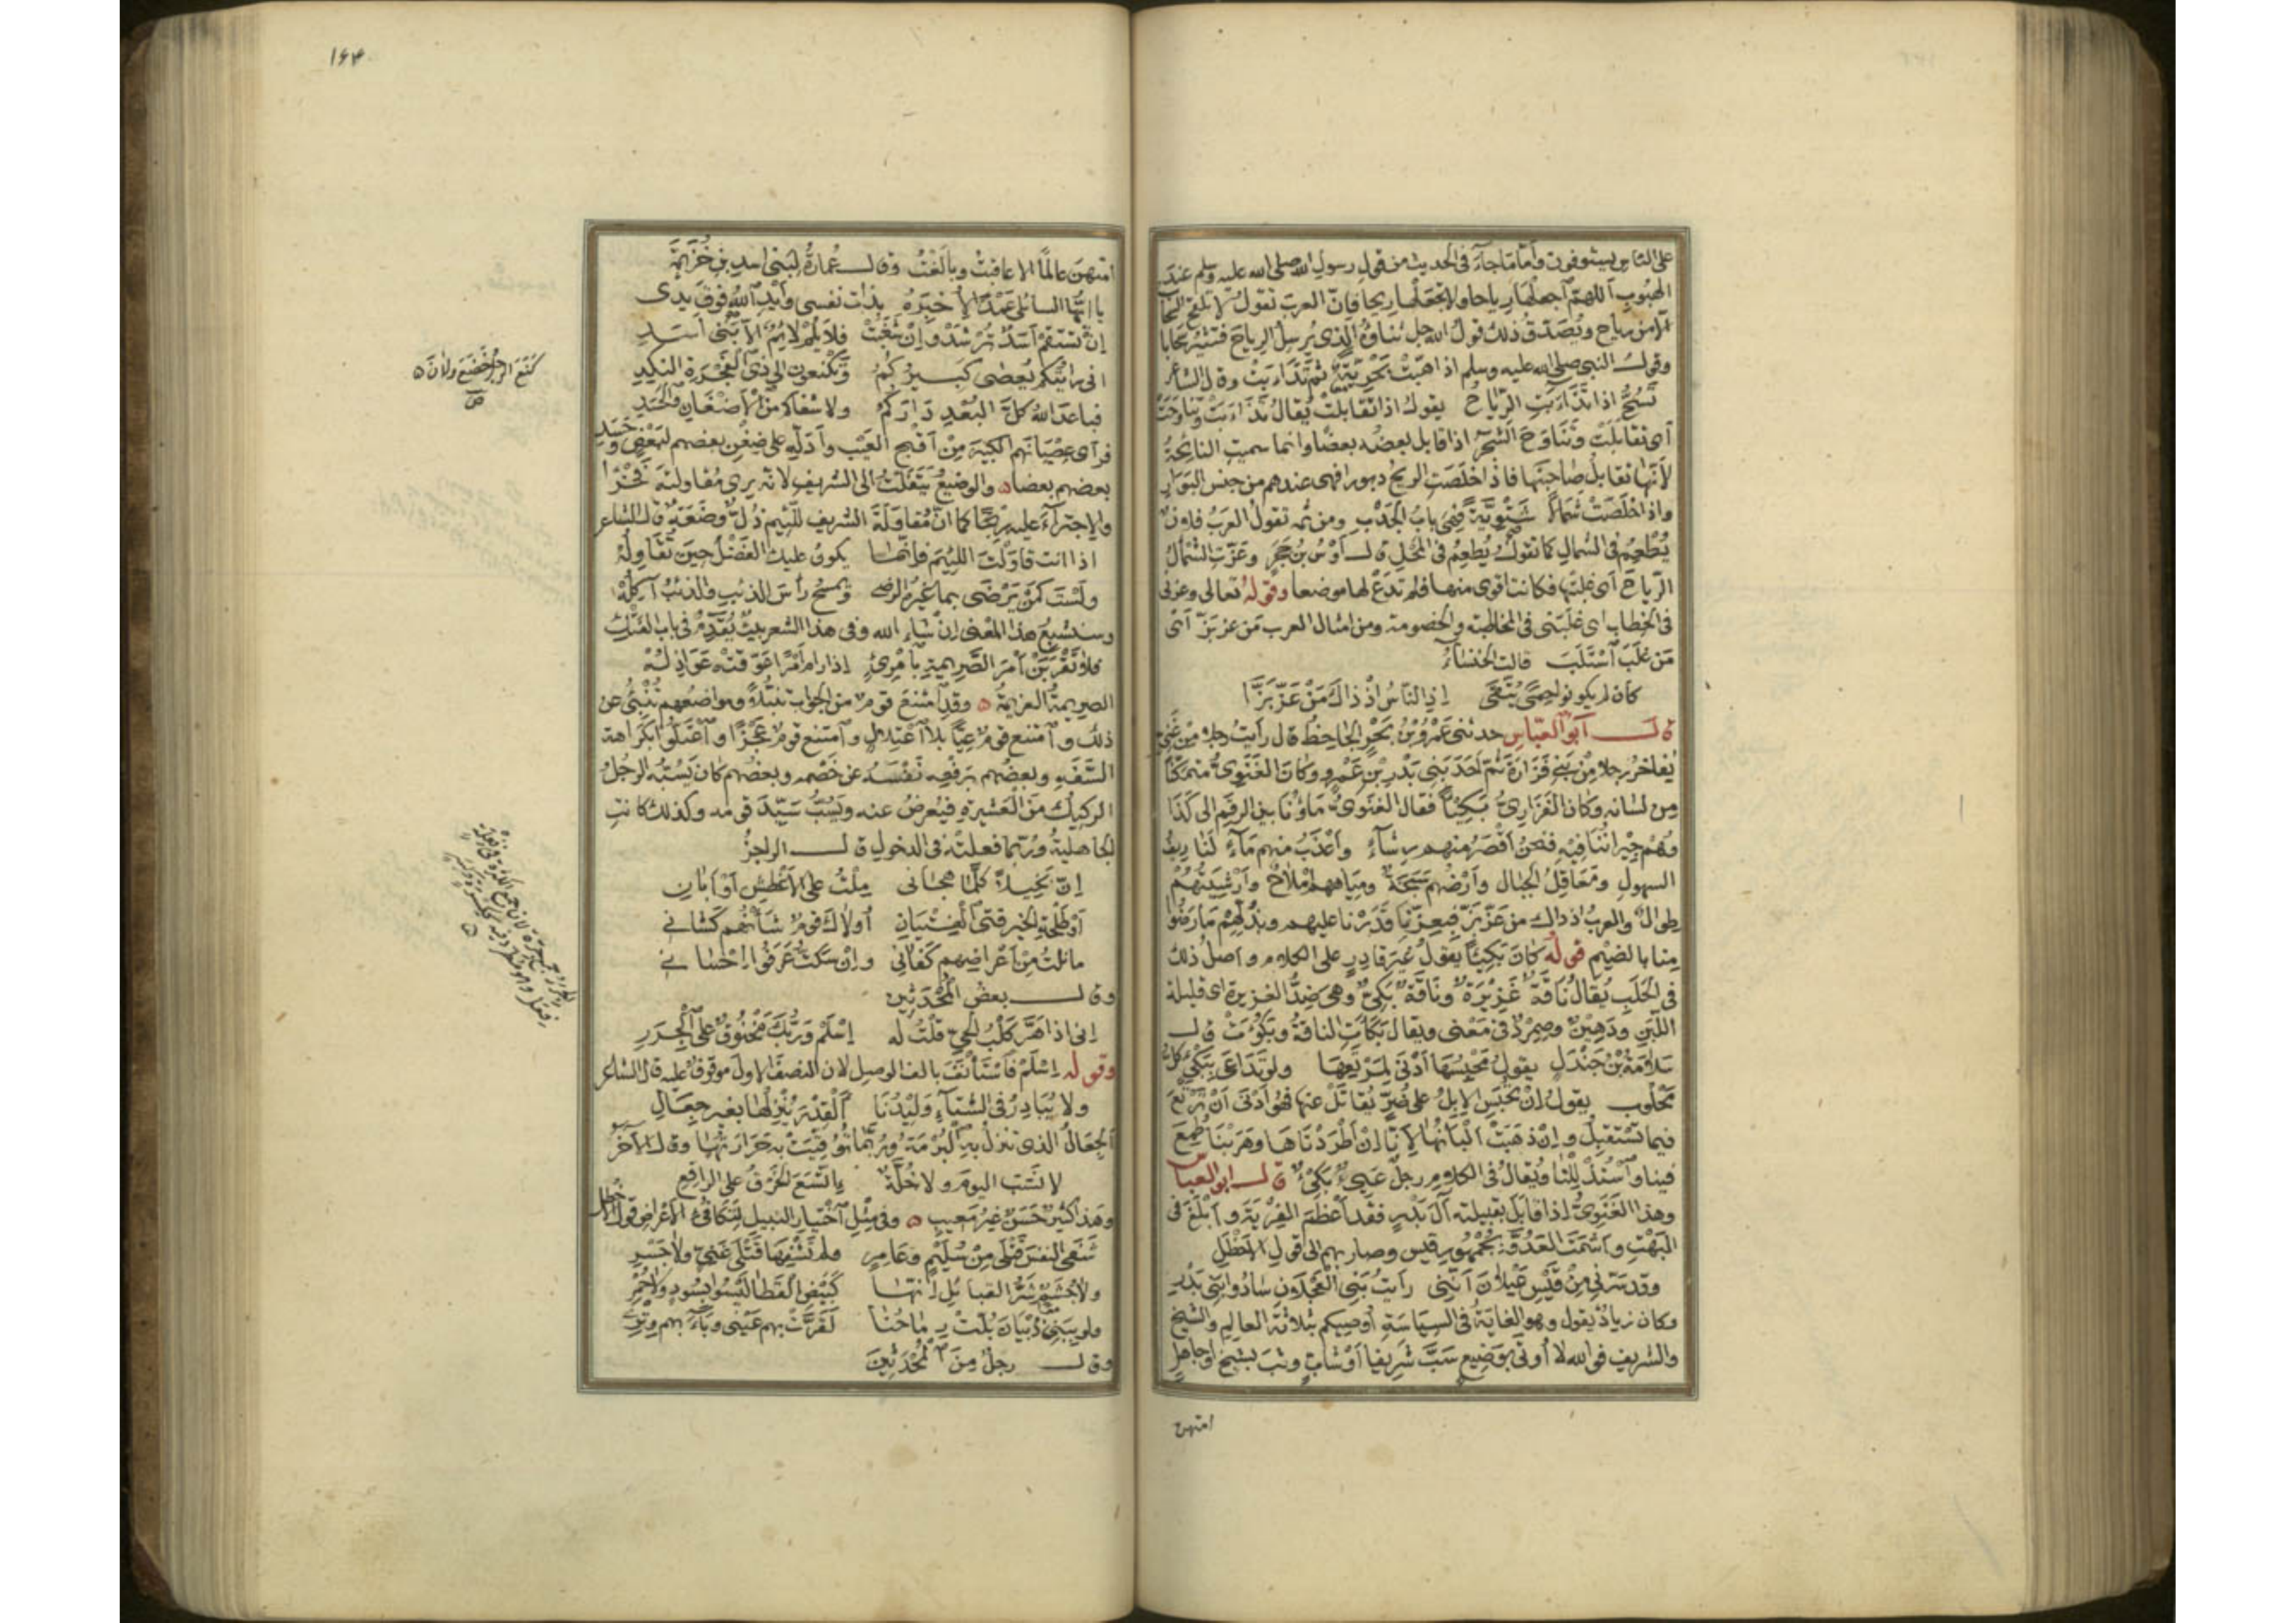 على الناس يستوفون وأما ما جاء في الحديث من قول رسول الله صلى الله عليه وسلم عند
الهبوب اللهم اجعلها رياحا ولا تجعلها ريحا فإن العرب تقول لا تلقح السحاب
الا من رياح ويصدق ذلك قول الله جل ثناؤه الذي يرسل الرياح فتثير سحابا
وقول النبي صلى الله عليه وسلم اذا هبت بحرية ثم تذاءبت وقال الشاعر
تسح اذا تذاءبت الرياح يقول اذا تقابلت يقال تذاءبت وتناوحت
أي تقابلت وتناوح الشجر اذا قابل بعضه بعضا وانما سميت النائحة
لأنها تقابل صاحبتها فاذا خلصت الريح دبورا فهي عندهم من جنس البوار
واذا خلصت شمالا شتوية فهي باب الجدب ومن ثم تقول العرب فلان
يطعم في الشمال كما تقول يطعم في المحل قال أوس بن حجر وعزت الشمال
الرياح أي غلبتها فكانت اقوى منها فلم تدع لها موضعا وقوله تعالى وعزني
في الخطاب اي غلبني في المخاطبة والخصومة ومن امثال العرب من عز بز أي
من غلب استلب قالت الخنساء
كأن لم يكونوا حمى يتقى اذ الناس اذ ذاك من عز بزا
قال أبو العباس حدثني عمرو بن بحر الجاحظ قال رأيت رجلا من غني
يفاخر رجلا من بني فزارة ثم أحد بني بدر بن عمرو وكان الغنوي متمكنا
من لسانه وكان الفزاري بكيئا فقال الغنوي ماؤنا بين الرقم الى كذا
وهم جيراننا فيه فنحن أقصر منهم رشاء وأعذب منهم ماء لنا ريف
السهول ومعاقل الجبال وأرضهم سبخة ومياههم أملاح وأرشيتهم
طوال والعرب اذ ذاك من عز بز فبعزنا قدرنا عليهم وبذلهم ما رضوا
منا بالضيم قوله كان بكيئا يقول غير قادر على الكلام وأصل ذلك
في الحلب يقال ناقة غزيرة وناقة بكئ وهي ضد الغزيرة اي قليلة
اللبن ودهين وصمرد في معنى ويقال بكأت الناقة وبكؤت قال
سلامة بن جندل يقول محبسها أدنى لمرتعها ولو تداعى ببكئ كل
محلوب يقول إن تحبس الإبل على ضر يقاتل عنها فهو أدنى أن ترتع
فيما تستقبل وإن ذهبت ألبانها لأنا إن أطردناها وهربنا طمع
فينا واستذللنا ويقال في الكلام رجل عيي بكئ قال ابو العباس
وهذا الغنوي اذا قابل بقبيلته آل بدر فقد أعظم الفرية وأبلغ في
البهت وأشمت العدو بجمهور قيس وصار بهم الى قول الأخطل
وقد سرني من قيس عيلان أنني رأيت بني العجلان سادوا بني بدر
وكان زياد يقول وهو الغاية في السياسة أوصيكم بثلاثة العالم والشيخ
والشريف فوالله لا أوتى بوضيع سب شريفا أو شاب وثب بشيخ او جاهل
امتهن
١۶۴
امتهن عالما الا عاقبت وبالغت وقال عمارة لبني اسد بن خزيمة
يا ايها السائلي عمدا لأخبره بذات نفسي وأيد الله فوق يدي
إن تستقم أسد ترشد وإن شغبت فلا يلم لائم الا بني أسد
اني رأيتكم يعصى كبيركم وتكنعون الى ذي الفجرة النكد
فباعد الله كل البعد داركم ولا شفاكم من الأضغان والحسد
فرأى عصيانهم الكبير من أقبح العيب وأدله على ضغن بعضهم لبعض وحسد
بعضهم بعضا والوضيع يتفلت الى الشريف لانه يرى مقاولته فخرا
والاجتراء عليه ربحا كما أن مقاولة الشريف للئيم ذل وضعة قال الشاعر
اذا انت قاولت اللئيم فإنما يكون عليك الفضل حين تقاوله
ولست كمن يرضى بما غيره الرضى ويمسح رأس الذئب والذئب آكله
وسنشبع هذا المعنى إن شاء الله وفي هذا الشعر بيت يقدم في باب الفتك
فلا تقربن أمر الصريمة بامرئ إذا رام أمرا عوقته عواذله
الصريمة العزيمة وقد امتنع قوم من الجواب تنبلا ومواضعهم تنبئ عن
ذلك وامتنع قوم عيا بلا اعتلال وامتنع قوم عجزا واعتلوا بكراهة
السفه وبعضهم برفع نفسه عن خصمه وبعضهم كان يسبه الرجل
الركيك من العشيرة فيعرض عنه ويسب سيد قومه وكذلك كانت
الجاهلية وربما فعلته في الدخول قال الراجز
إن بخيلا كلما هجاني ملت على الأغطش أو أبان
أو طلحة الخير فتى الفتيان أولاك قوم شأنهم كشاني
ما نلت من أعراضهم كفاني وإن سكت عرفوا احساني
وقال بعض المحدثين
إني اذا هر كلب الحي قلت له إسلم وربك مخنوق على الجرر
وقوله إسلم فاستأنف بالف الوصل لان النصف الاول موقوف عليه قال الشاعر
ولا يبادر في الشتاء وليدنا ألقدر ينزلها بغير جعال
الجعال الذي تنزل به البرمة وربما توقيت به حرارتها وقال آخر
لا نسب اليوم ولا خلة إتسع الخرق على الراقع
وهذا كثير حسن غير معيب وفي مثل اختيار النبيل لتكافؤ الأعراض قول الأخطل
شفى النفس قتلى من سليم وعامر ولم تشفها قتلى غني ولا جسر
ولا جشم شر القبائل إنها كبيض القطا ليسوا بسود ولا حمر
ولو ببني ذبيان بلت رماحنا لقرت بهم عيني وباء بهم وتري
وقال رجل من المحدثين
كنع الرجل خضع ولان